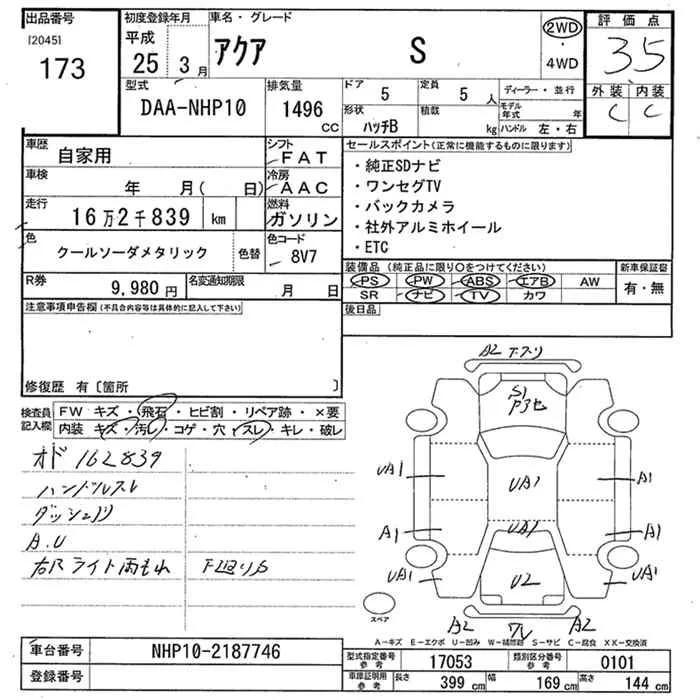 出品番号
[2045]
173
初度登録年月
平成
25 3月
車名・グレード
アクア S
2WD
・
4WD
評価点
3.5
外装 内装
C C
型式
DAA-NHP10
排気量
1496
CC
ドア
5
定員
5 人
形状
ハッチB
積載
kg
ディーラー・並行
モデル年式 年
ハンドル 左・右
車歴
自家用
シフト
FAT
車検
年 月( 日)
冷房
AAC
走行
16万2千839 km
燃料
ガソリン
色
クールソーダメタリック
色替
色コード
8V7
R券
9,980円
名変通知期限
月 日
セールスポイント(正常に機能するものに限ります)
・純正SDナビ
・ワンセグTV
・バックカメラ
・社外アルミホイール
・ETC
装備品(純正品に限り○をつけてください)
PS PW ABS エアB AW
SR ナビ TV カワ
新車保証書
有・無
後日品
注意事項申告欄(不具合内容等は具体的に記入して下さい)
修復歴 有〔箇所 〕
検査員
記入欄
FW キズ・飛石・ヒビ割・リペア跡・×要
内装 キズ・汚レ・コゲ・穴・スレ・キレ・破レ
オド 162839
ハンドルスレ
A.U
A2
S1
UA1
UA1
A1
A1
A1
UA1
UA1
UA1
U2
A2
A2
スペア
A-キズ E-エクボ U-凹み W-補修跡 S-サビ C-腐食 XX-交換済
車台番号
NHP10-2187746
登録番号
型式指定番号
参考
17053
類別区分番号
参考
0101
車庫証明用
参考
長さ
399 cm
幅
169 cm
高さ
144 cm